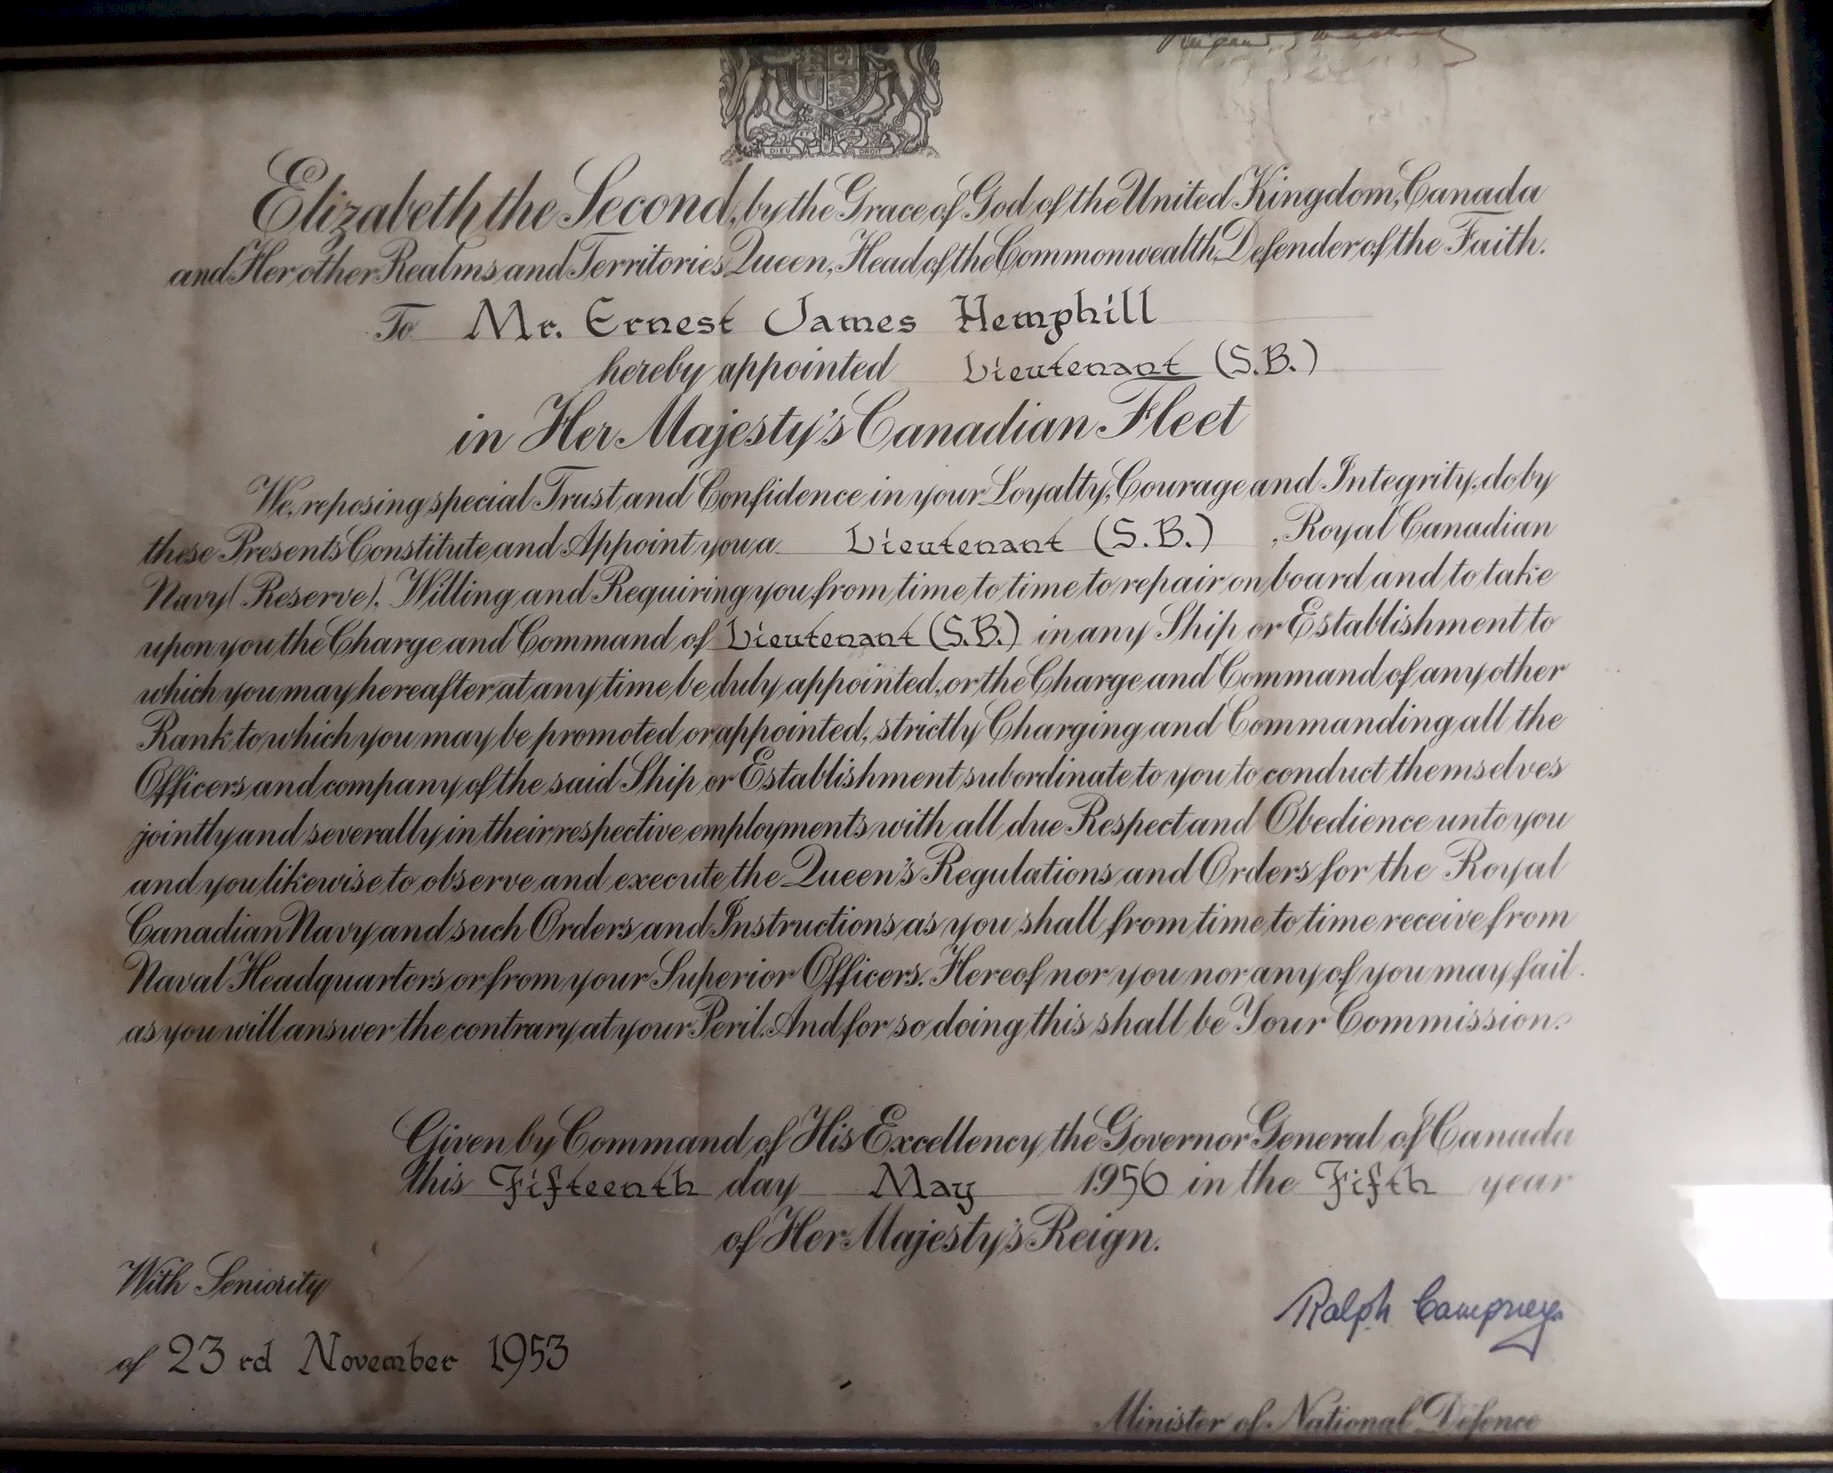 DIEU DROIT
Elizabeth the Second, by the Grace of God of the United Kingdom, Canada
and Her other Realms and Territories Queen, Head of the Commonwealth, Defender of the Faith.
To Mr. Ernest James Hemphill
hereby appointed Lieutenant (S.B.)
in Her Majesty's Canadian Fleet
We, reposing special Trust and Confidence in your Loyalty, Courage and Integrity, do by
these Presents Constitute and Appoint you a Lieutenant (S.B.) , Royal Canadian
Navy (Reserve). Willing and Requiring you from time to time to repair on board and to take
upon you the Charge and Command of Lieutenant (S.B.) in any Ship or Establishment to
which you may hereafter at any time be duly appointed, or the Charge and Command of any other
Rank to which you may be promoted or appointed, strictly Charging and Commanding all the
Officers and company of the said Ship or Establishment subordinate to you to conduct themselves
jointly and severally in their respective employments with all due Respect and Obedience unto you
and you likewise to observe and execute the Queen's Regulations and Orders for the Royal
Canadian Navy and such Orders and Instructions as you shall from time to time receive from
Naval Headquarters or from your Superior Officers. Hereof nor you nor any of you may fail
as you will answer the contrary at your Peril. And for so doing this shall be Your Commission.
Given by Command of His Excellency the Governor General of Canada
this Fifteenth day May 1956 in the Fifth year
of Her Majesty's Reign.
With Seniority
of 23rd November 1953
Ralph Campney
Minister of National Defence